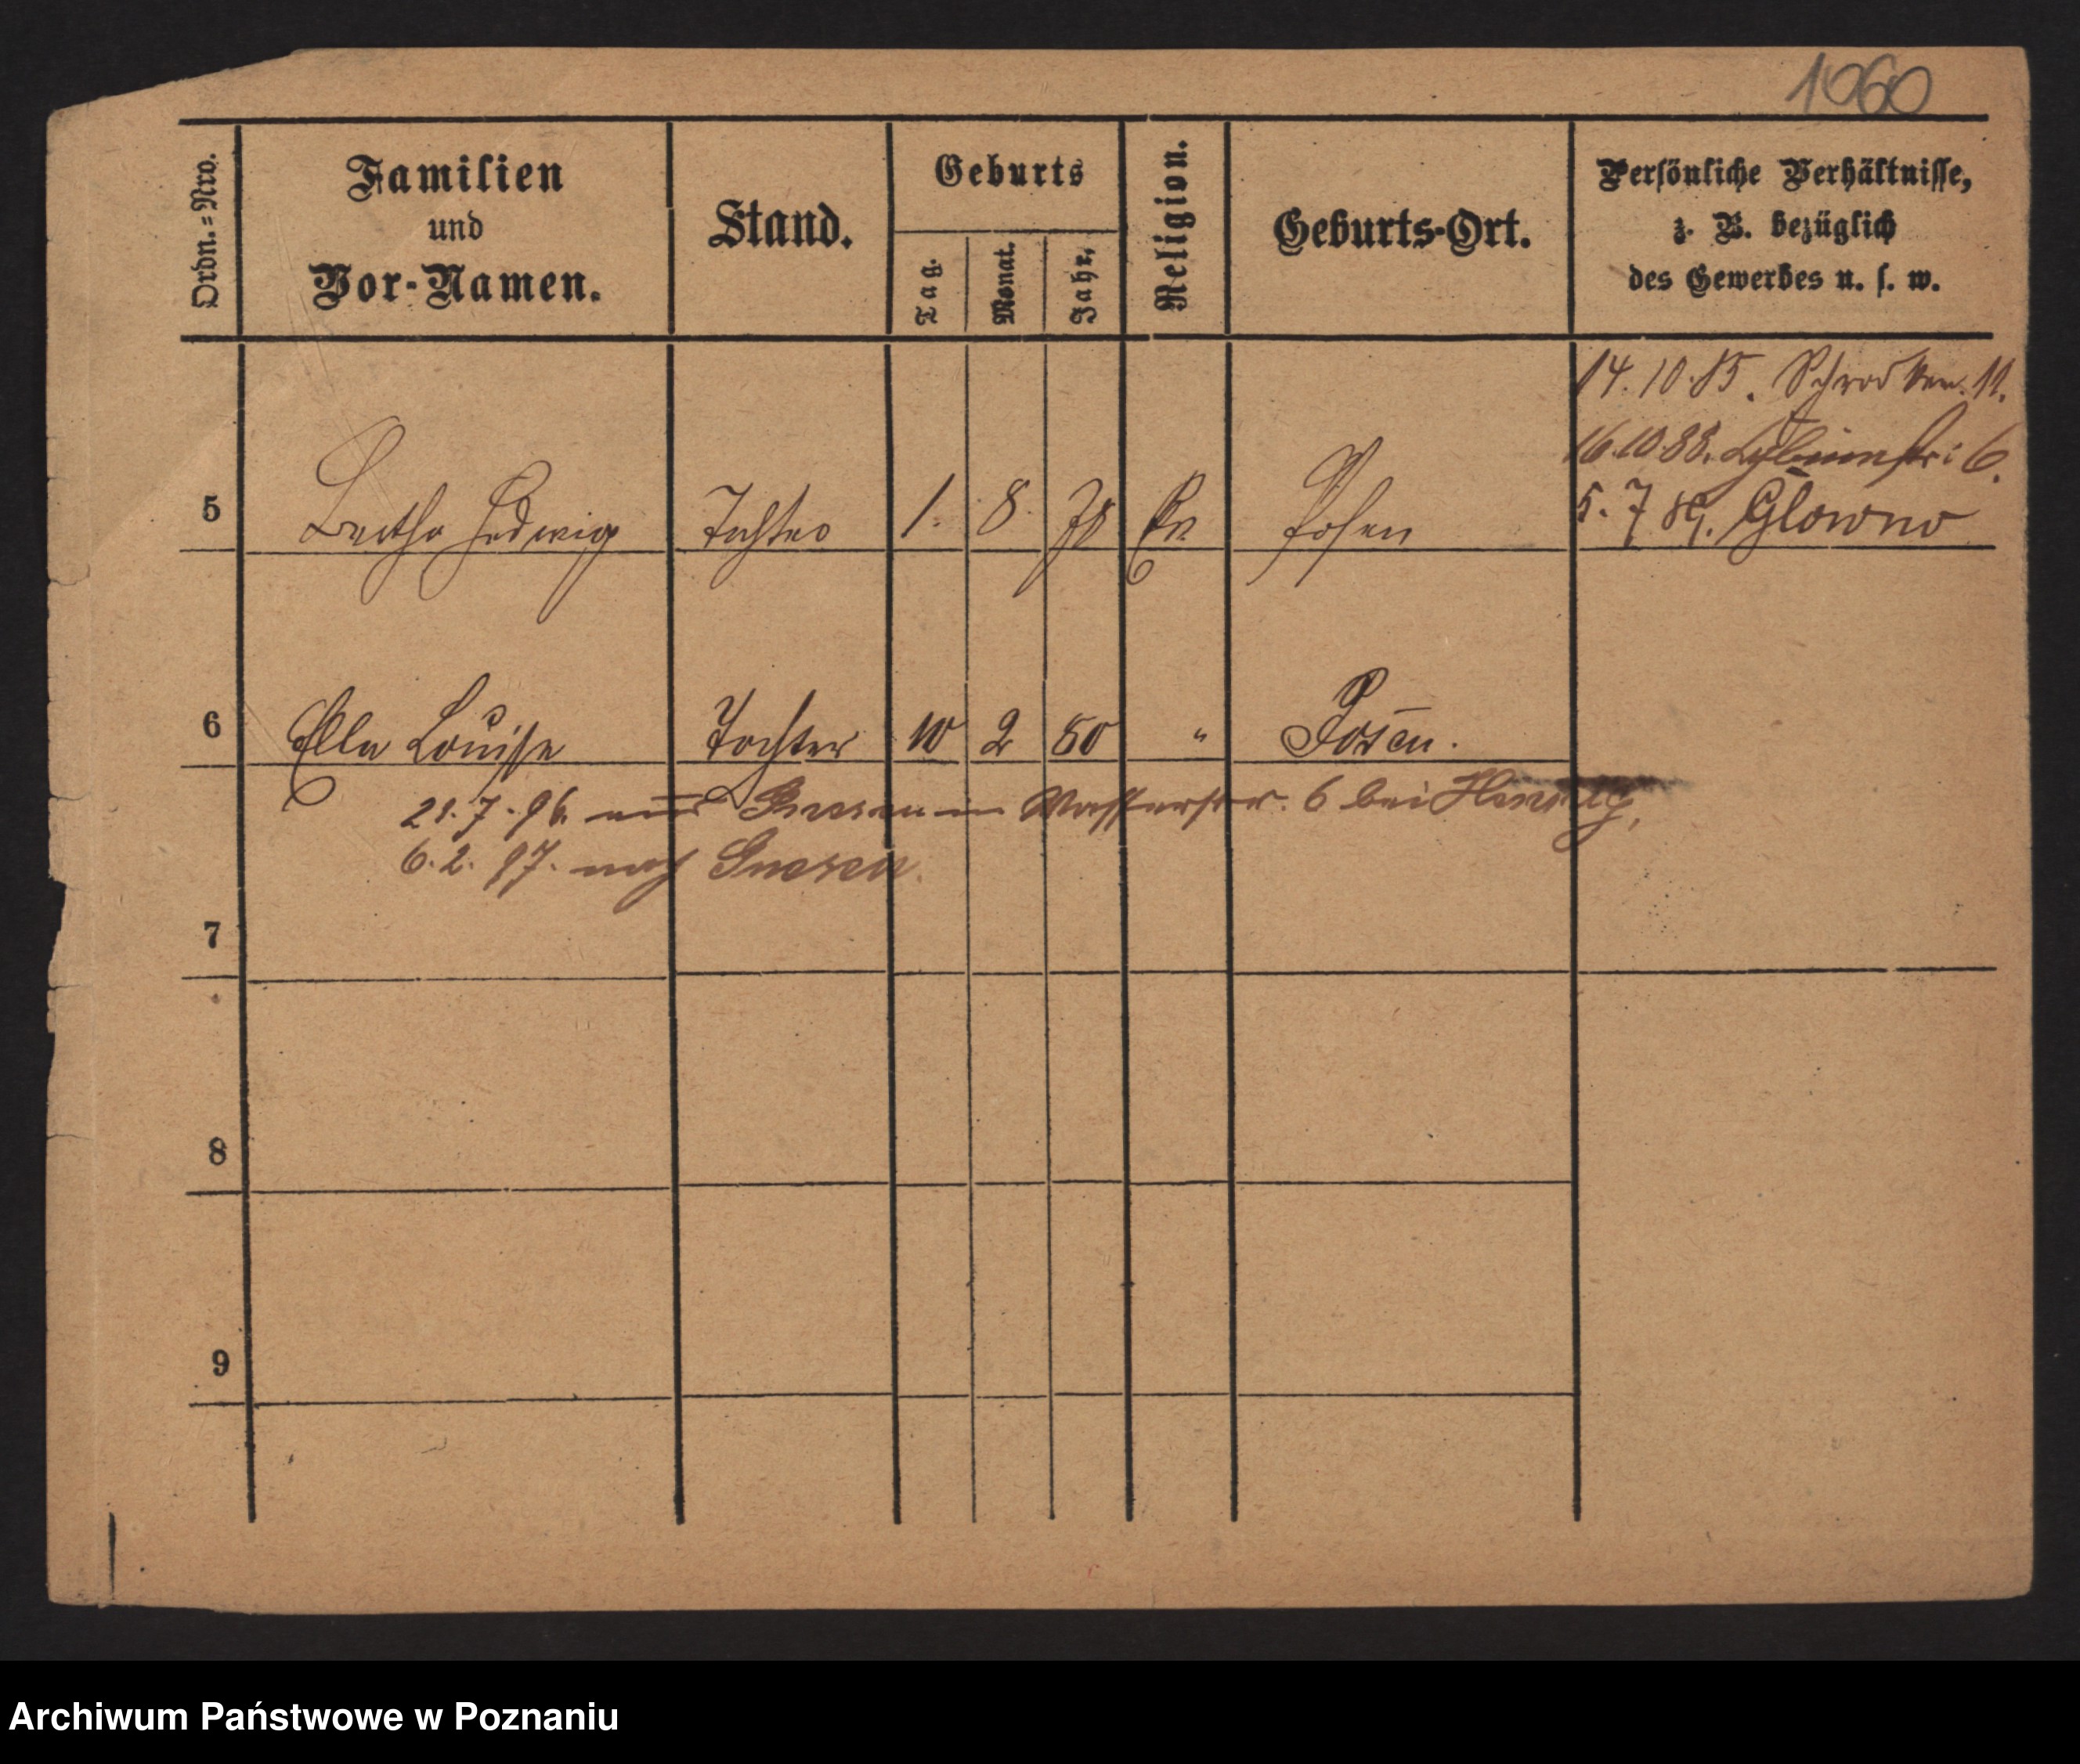 1060
Ordn.=Nro.
Familien
und
Vor-Namen.
Stand.
Geburts
Tag.
Monat.
Jahr,
Religion.
Geburts-Ort.
Persönliche Verhältnisse,
z. B. bezüglich
des Gewerbes u. s. w.
14. 10. 85. Schrod 11.
16.10.88. 6.
5. 7 89. Glowno
5 Bertha Hedwig Tochter 1. 8. 78 Ev Posen
6 Ella Louise Tochter 10 2 80 " Posen.
21. 7. 96. aus Wasserstr. 6 bei
6. 2. 97. nach Gnesen.
7
8
9
Archiwum Państwowe w Poznaniu